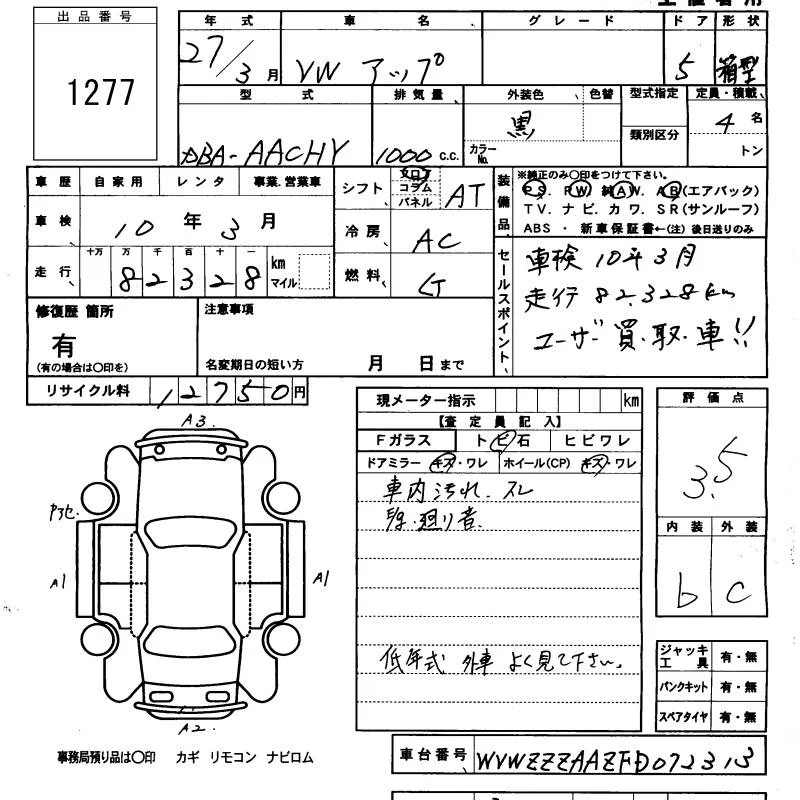 出品番号
1277
年式 車名 グレード ドア 形状
27/3月 VW アップ 5 箱型
型式 排気量 外装色 色替 型式指定 定員・積載
DBA-AACHY 1000 c.c. 黒 カラーNo. 類別区分 4名
トン
車歴 自家用 レンタ 事業.営業車
車検 10年3月
走行 十万 万 千 百 十 一
82328 km マイル
シフト フロア コラム パネル AT
冷房 AC
燃料
装備品
※純正のみ〇印をつけて下さい。
PS. PW 純AW. AB(エアバック)
TV. ナビ. カワ. SR(サンルーフ)
ABS ・ 新車保証書←(注)後日送りのみ
セールスポイント
車検 10年3月
走行 82.328km
ユーザー買取車!!
修復歴 箇所
有
(有の場合は〇印を)
注意事項
名変期日の短い方 月 日まで
リサイクル料 12750円
現メーター指示 km
【査定員記入】
Fガラス トビ石 ヒビワレ
ドアミラー キズ・ワレ ホイール(CP) キズ・ワレ
車内汚れ.スレ
廻り音.
低年式 外車 よく見て下さい.
評価点
3.5
内装 外装
b C
ジャッキ工具 有・無
パンクキット 有・無
スペアタイヤ 有・無
A3.
A1
A1
A2.
事務局預り品は〇印 カギ リモコン ナビロム
車台番号 WVWZZZAAZFD072313